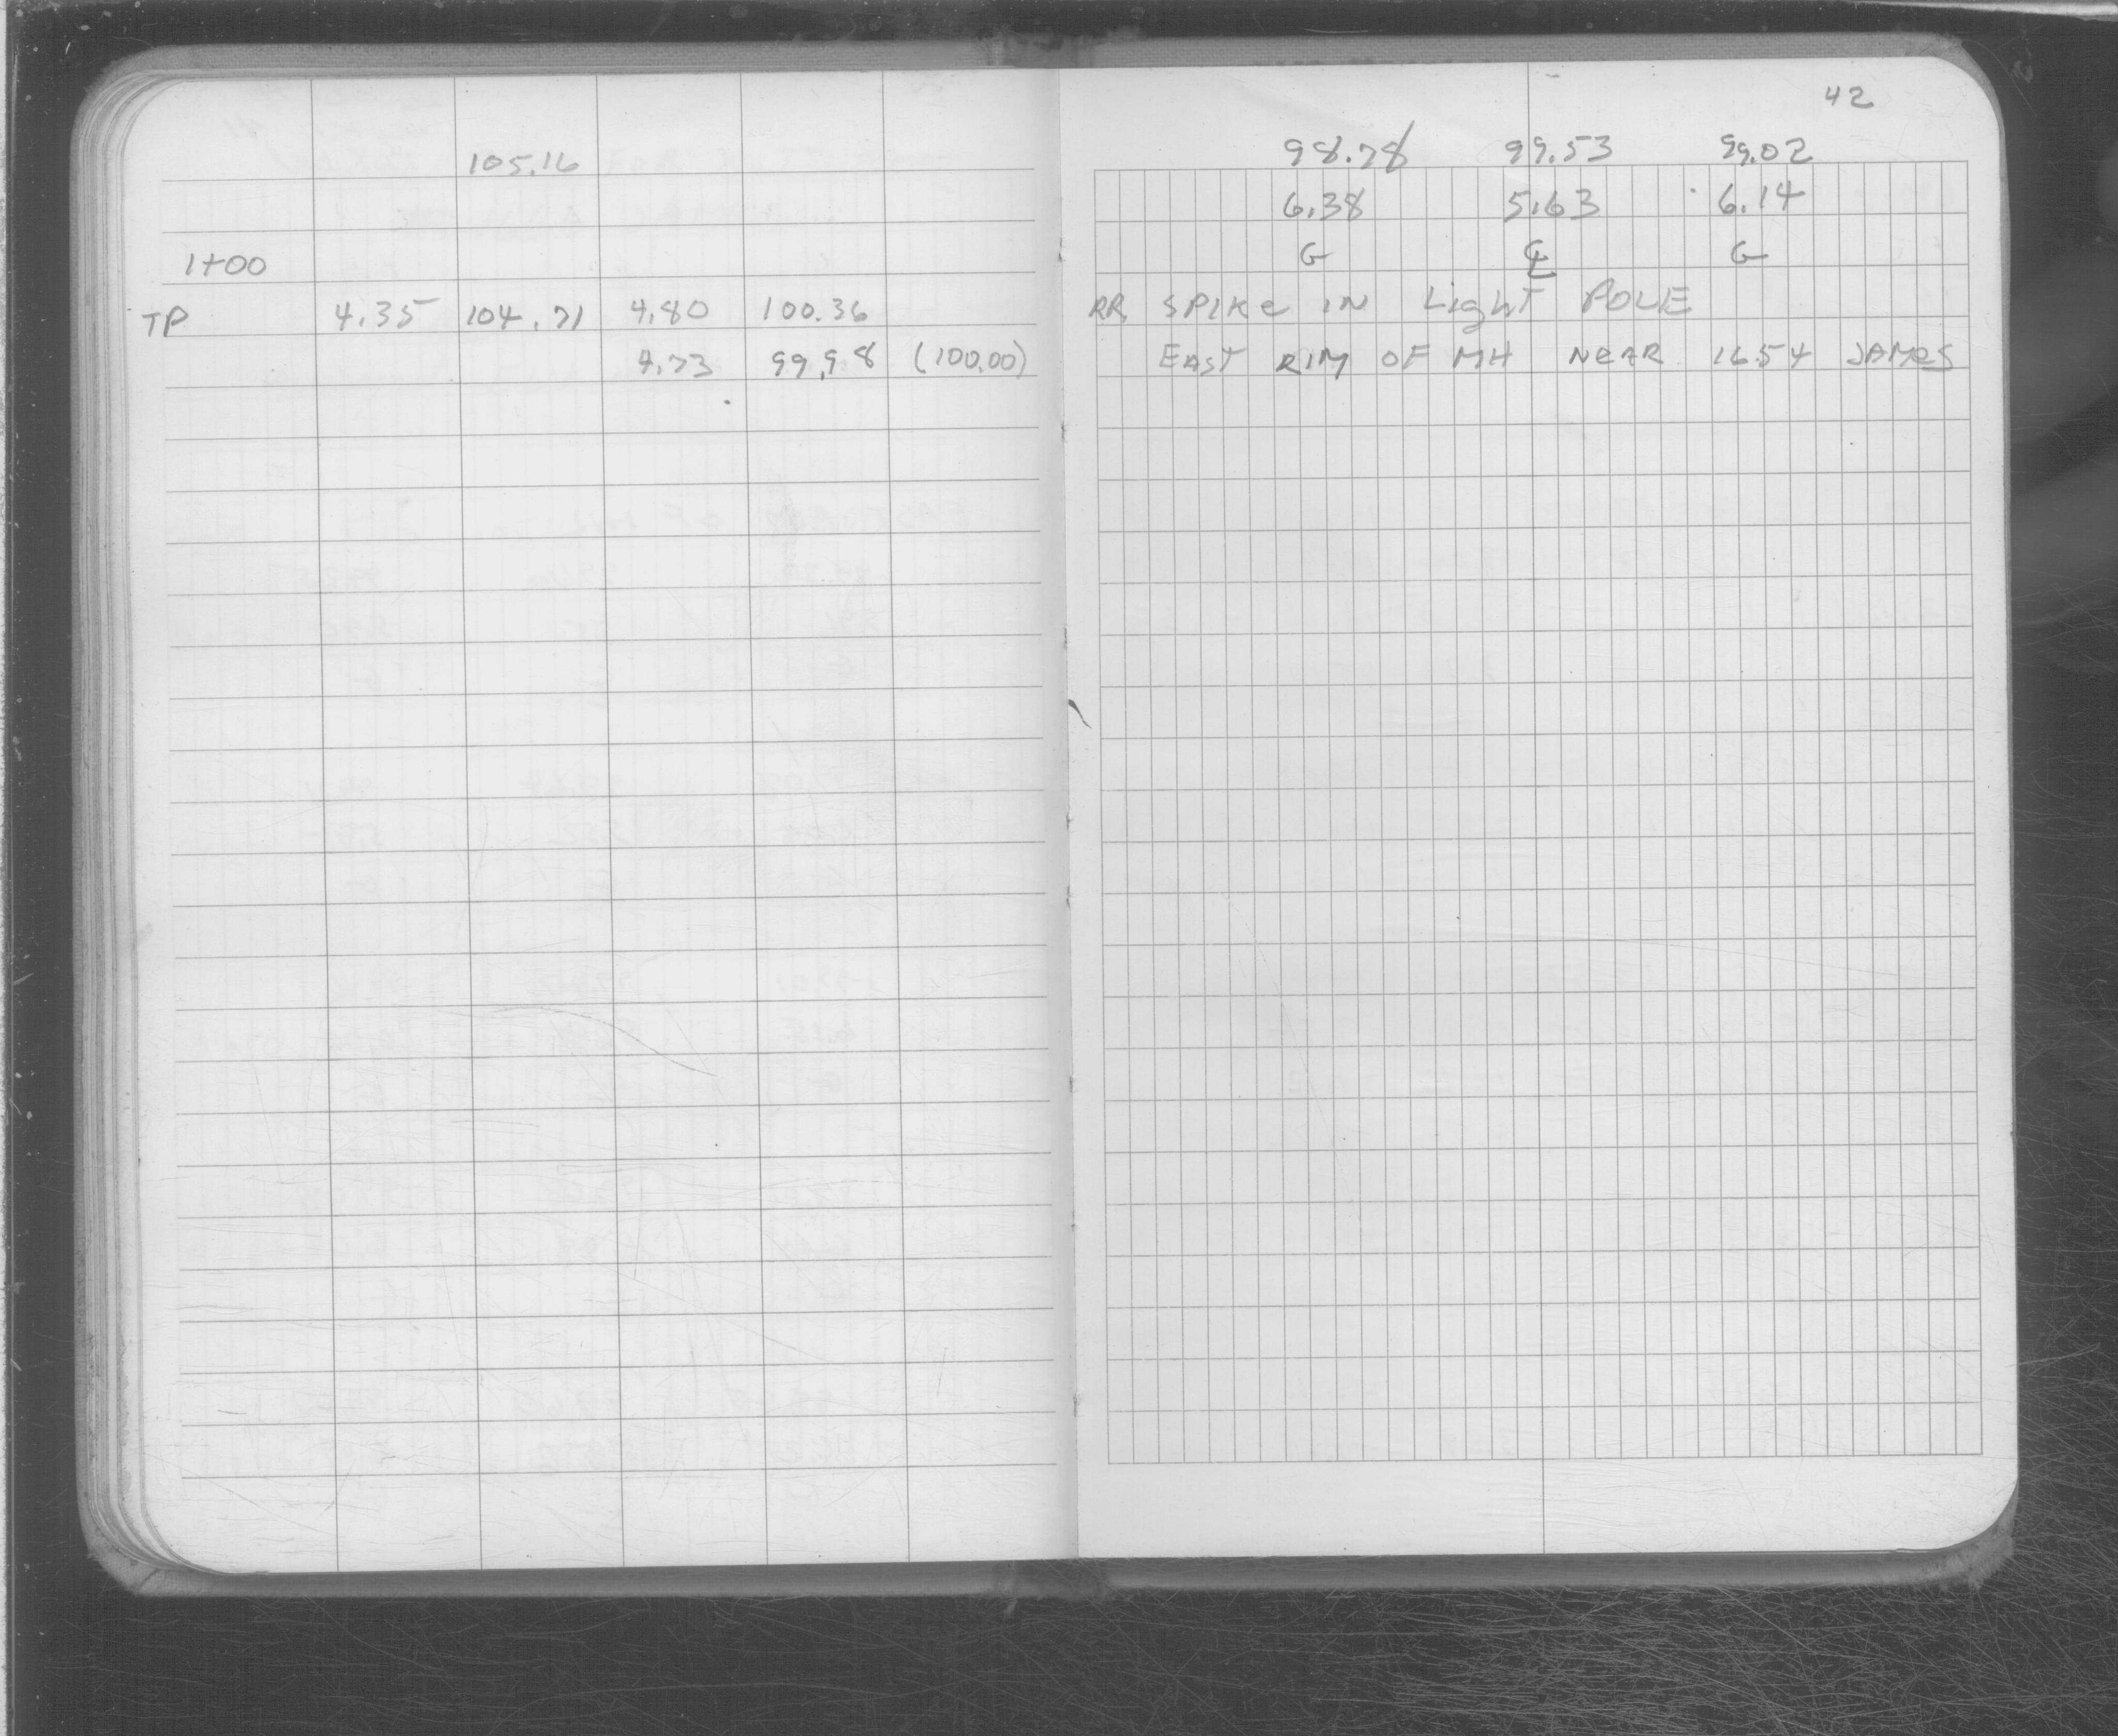 42
105.16 98.78 99.53 99.02
6.38 5.63 6.14
1+00 G ℄ G
TP 4.35 104.71 4.80 100.36 RR SPIKE IN LIGHT POLE
4.73 99.98 (100.00) EAST RIM OF MH NEAR 1654 JAMES